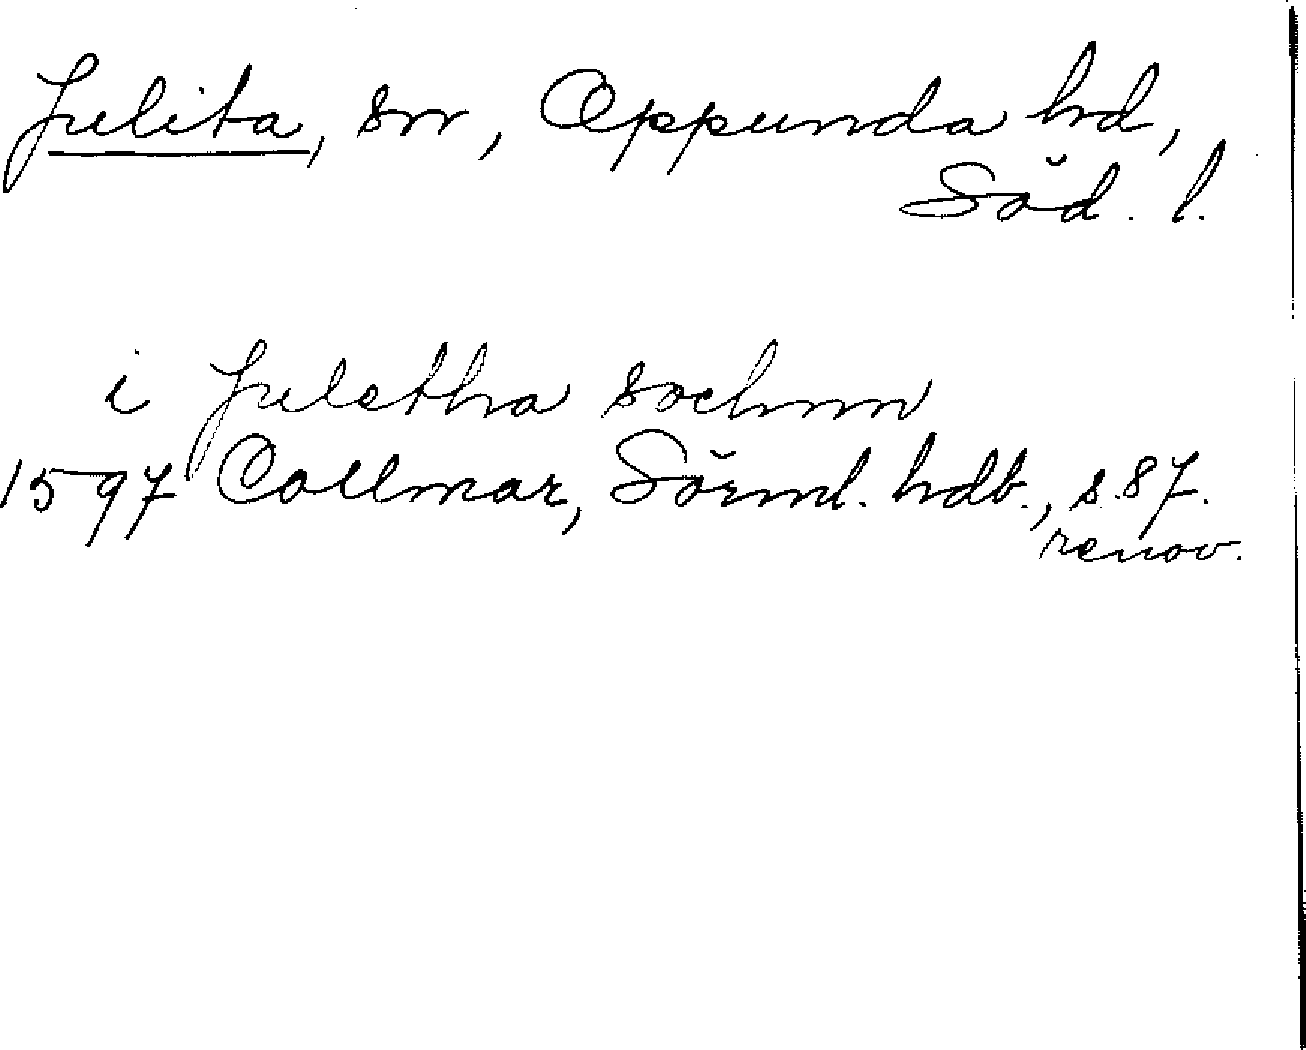 Julita, sn, Oppunda hd,
Söd. l.
i Juletha sochnn
1597 Collmar, Sörml. hdb., s. 87.
renov.